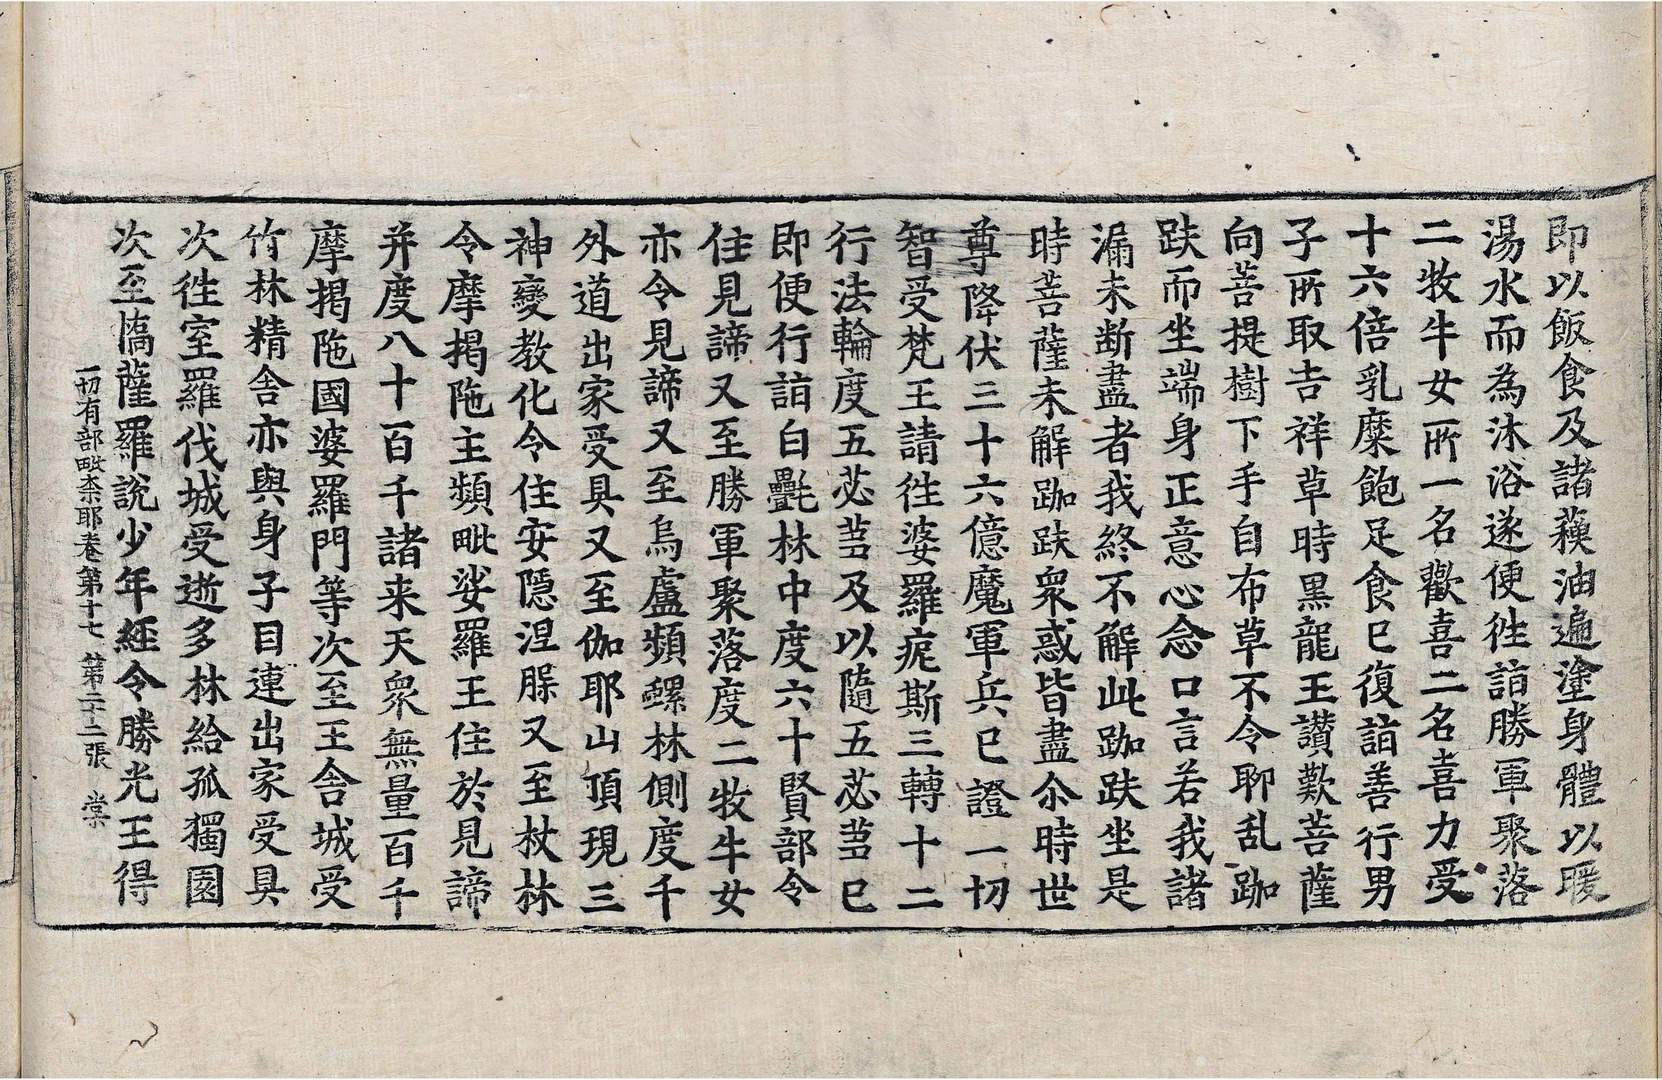 即以飯食及諸蘓油遍塗身體以暖
湯水而為沐浴遂便徃詣勝軍聚落
二牧牛女所一名歡喜二名喜力受
十六倍乳糜飽足食已復詣善行男
子所取吉祥草時黒龍王讃歎菩薩
向菩提樹下手自布草不令聊乱跏
趺而坐端身正意心念口言若我諸
漏未断盡者我終不解此跏趺坐是
時菩薩未解跏趺衆惑皆盡尒時世
尊降伏三十六億魔軍兵已證一切
智受梵王請徃婆羅痆斯三轉十二
行法輪度五苾芻及以隨五苾芻已
即便行詣白㲲林中度六十賢部令
住見諦又至勝軍聚落度二牧牛女
亦令見諦又至烏盧頻螺林側度千
外道出家受具又至伽耶山頂現三
神變教化令住安隱涅槃又至杖林
令摩揭陁主頻毗娑羅王住於見諦
并度八十百千諸来天衆無量百千
摩揭陁國婆羅門等次至王舍城受
竹林精舍亦與身子目連出家受具
次徃室羅伐城受逝多林給孤獨園
次至憍薩羅說少年經令勝光王得
一切有部毗柰耶卷第十七 第二十二張 棠